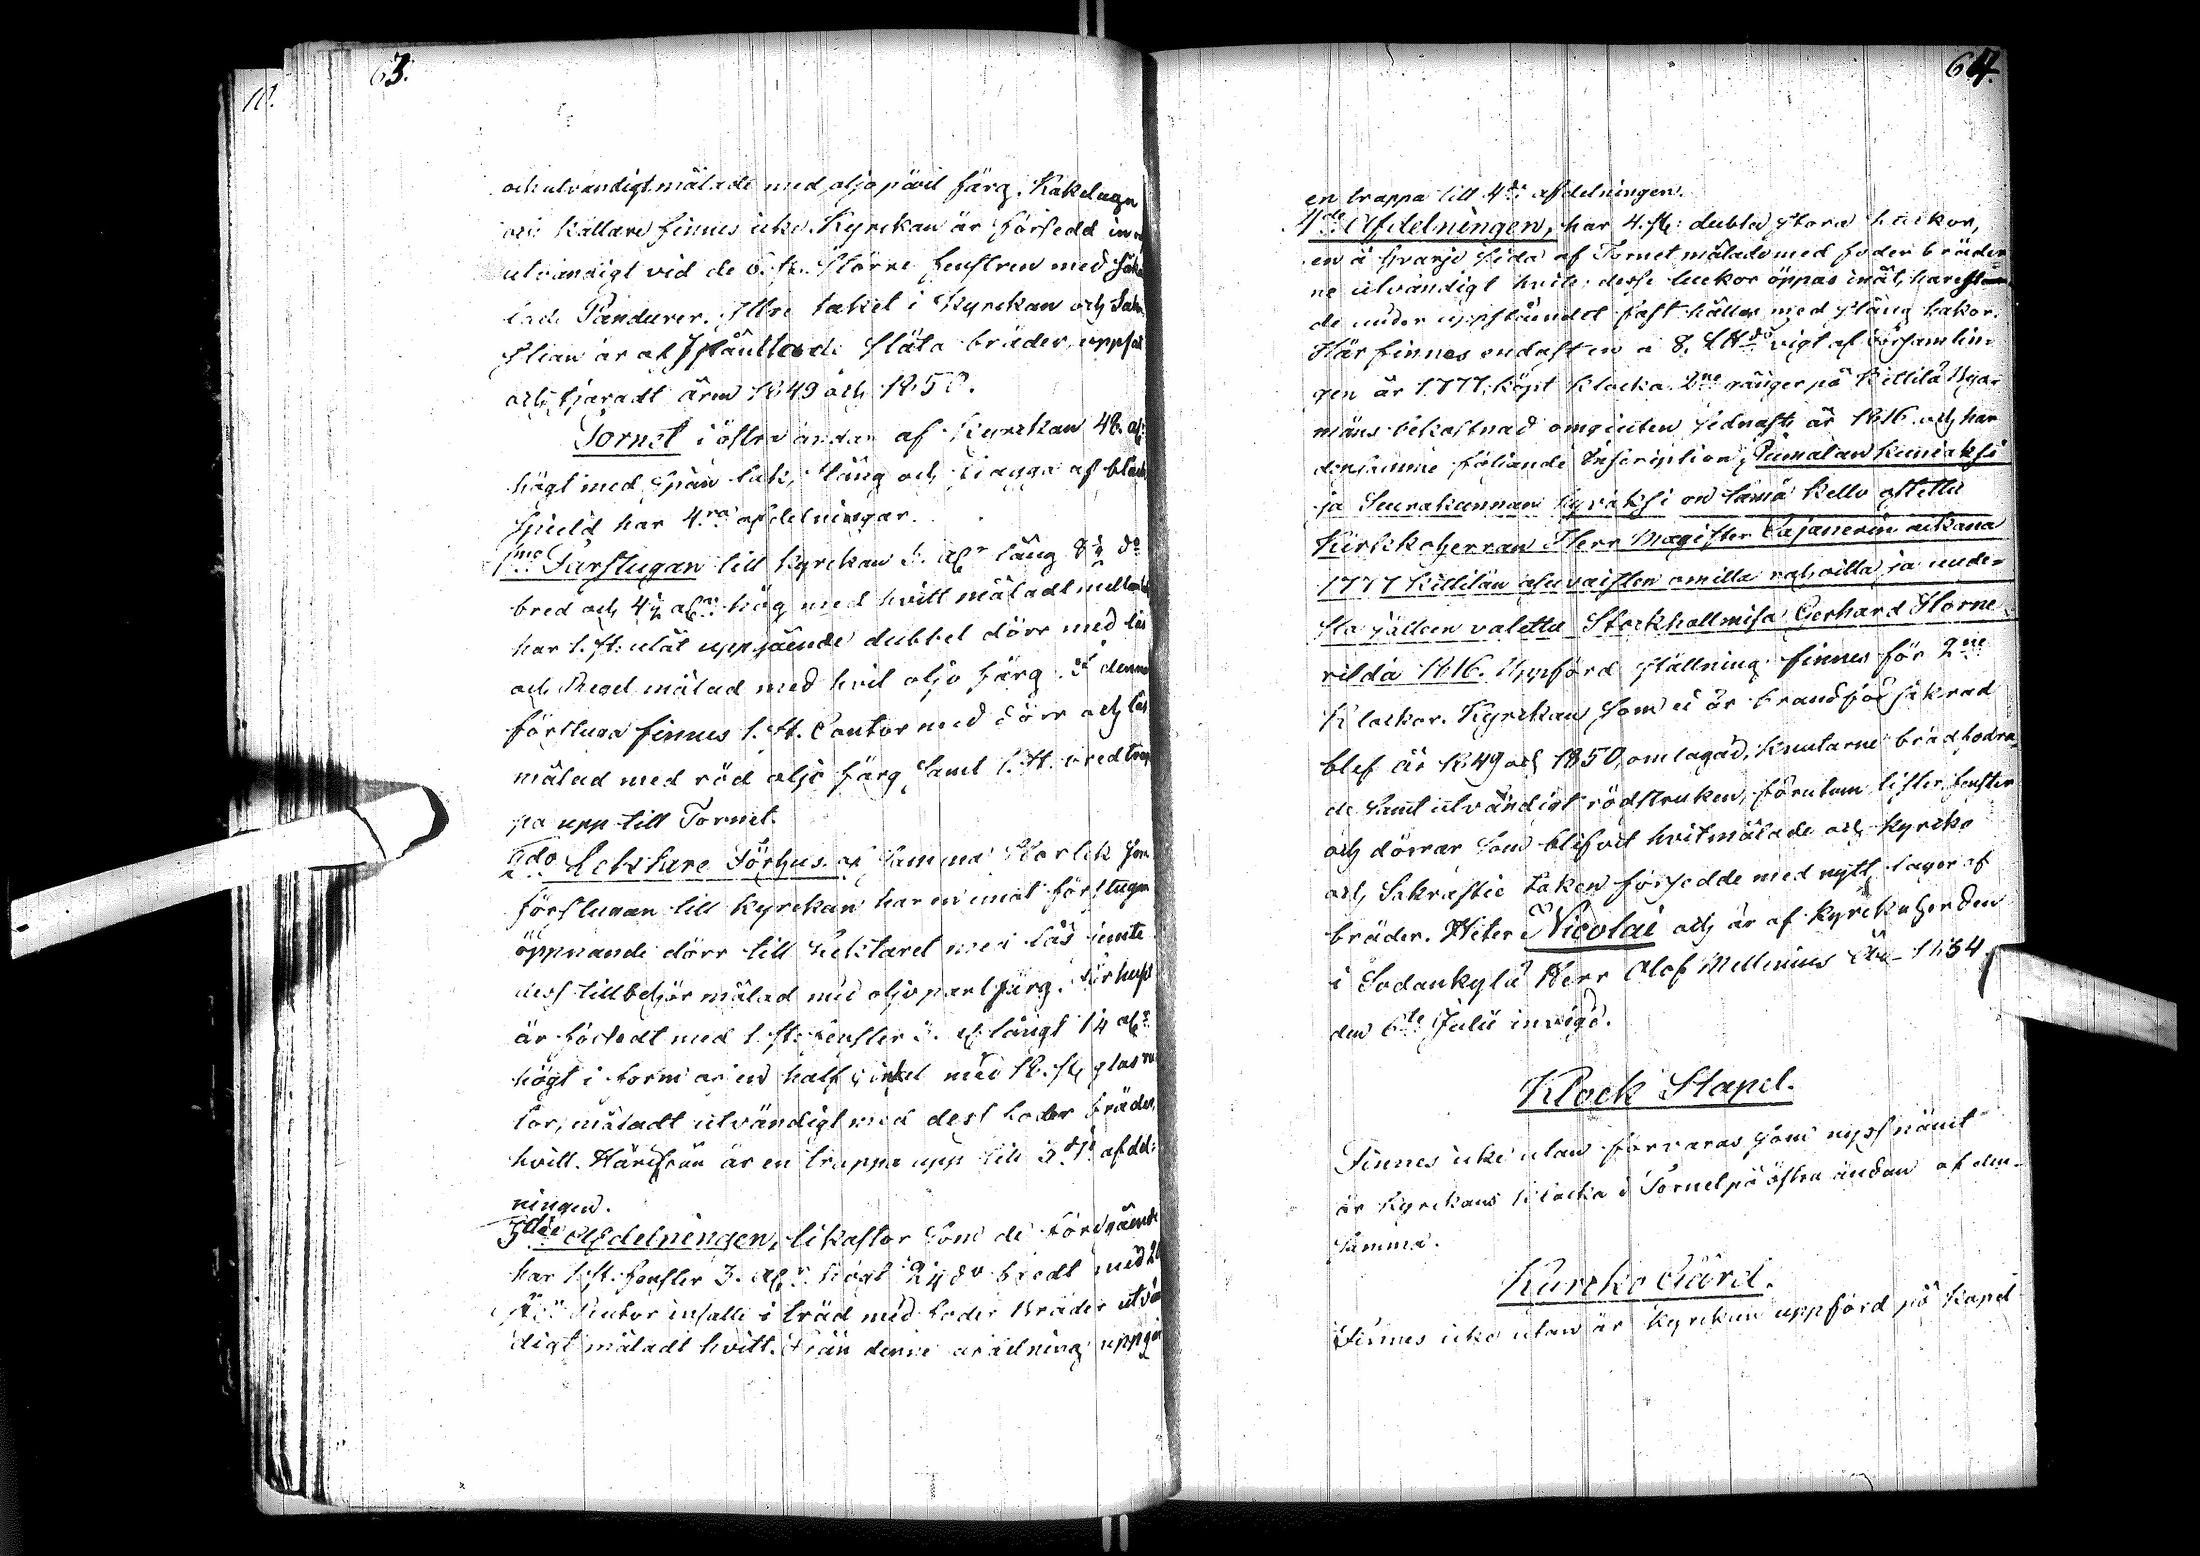 63.
och utvändigt målade med oljopärl färg. Kakelugn
och källare finnes icke. Kyrckan är försedd
utvändigt vid de 6. st. större fenstren med
lade Pandurer. Yttre taket i Kyrckan och Sakri
stian är af släta bräder,
och tjäradt åren 1849 och 1850.
Tornet i östra ändan af Kyrckan 48. al:
högt med spån tak, stång och flagga af bleck
har 4.ra afdelningar.
1mo Farstugan till Kyrckan 5. alr lång 8½ do
bred och 4½ alnr hög med hvitt måladt
har 1. st: utåt uppgående dubbel dörr med lås
och Regel målad med hvit oljo färg. I denne
förstuga finnes 1. st. Contor med dörr och lås
målad med röd oljo färg samt 1. st. bred trap
pa upp till Tornet.
2do Lektare Förhus af samma storlek som
förstugan till Kyrckan har en innåt förstugan
öppnande dörr till Lektaret med lås jemte
dess tillbehör målad med oljo perl färg. Förhuset
är försedt med 1. st: fenster 3. al: långt 1¼ alr
högt i form af en half cirkel med 18. st: glas ru
tor, måladt utvändigt med dess foder bräder
hvitt. Härifrån är en trappa upp till 3die afdel:
ningen.
3die Afdelningen, likastor som de föregående
har 1. st: fenster 3. alr högt 2¼ do bredt med 20
st: Rutor infatte i träd med foder Bräder utvän
digt måladt hvitt. Från denne afdelning uppgår
64.
en trappa till 4de afdelningen.
4de Afdelningen, har 4. st: dubla stora luckor,
en å hvarje sida af Tornet målade med foder bräder
ne utvändigt hvite; desse luckor öppas inåt,
de under uppståendet fast hållas med stång hakor.
Här finnes endast en a 8. LWd vigt af Församlin:
gen år 1777. köpt klocka. 2ne gånger på Kittilä Byar
mäns bekostnad omgjuten sednast år 1816. och har
densamme följande Inscription; Jumalan kuniaksi
ja Seurakunnan hyväksi on tämä kello ostettu
Kirkkoherran Herr Magister Cajanerin aikana
1777 Kittilän asuvaisten omilla rahoilla ja uude=
sta jälleen valettu Stockhollmisa Gerhard Horne
rilda 1816. Uppförd ställning finnes för 2ne
Klockor. Kyrckan som ei är brandförsäkrad
blef år 1849 och 1850, omlagad, knutarne brädfodra
de samt utvändigt rödstruken, förutom lister fenster
och dörrar som blifvit hvitmålade och kyrcko
och Sakristie taken försedde med nytt lager af
bräder. Heter Nicolai och är af kyrckoherden
i Sodankylä Herr Olof Mellenius År 1834.
den 6te Julii invigd.
Klock Stapel.
Finnes icke utan förvaras som nyss nämt
är kyrckans klocka i Tornet på östra ändan af den=
samma.
Kyrcko Gård.
Finnes icke utan är kyrckan uppförd på Kapel